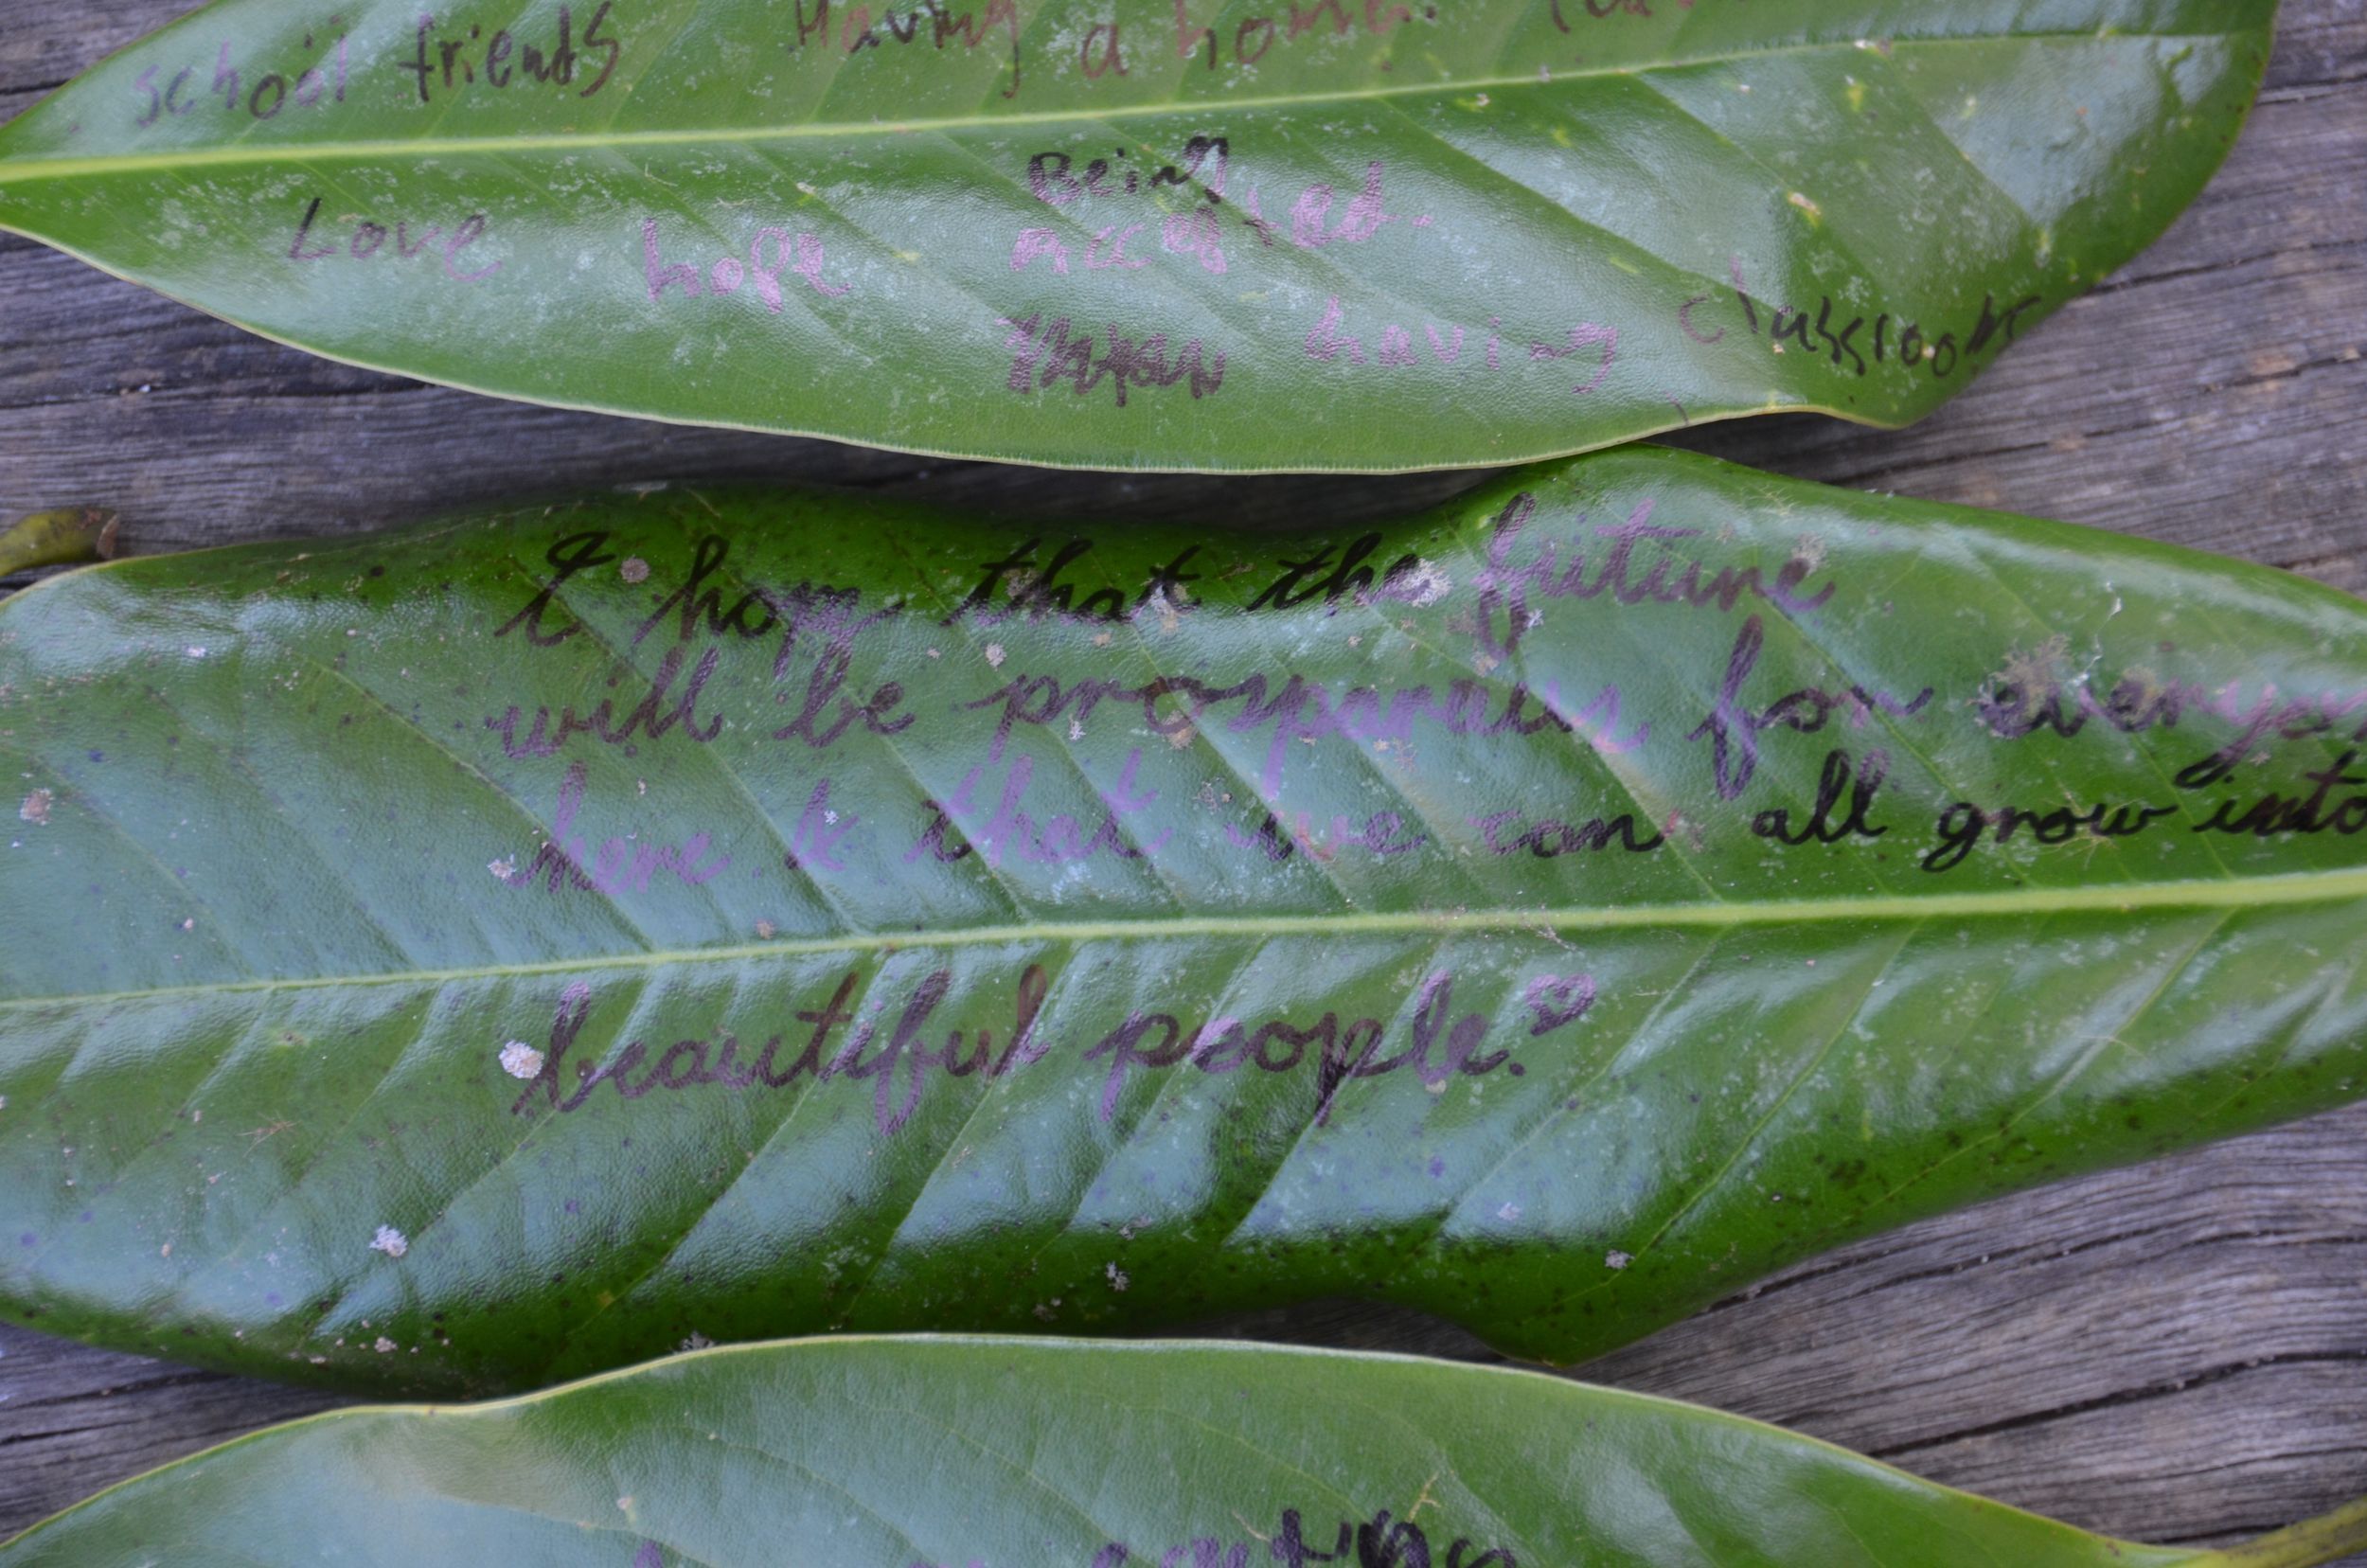 school friends Having a home.
Being
Love hope accepted.
having classrooms
I hope that the future
will be prosperous for everyon
here & that we can all grow into
beautiful people.♡